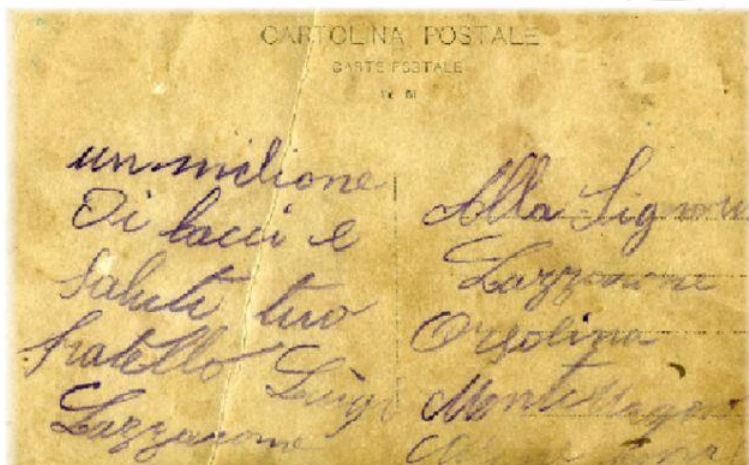 CARTOLINA POSTALE
CARTE POSTALE
un milione
Di bacci e
Saluti tuo
fratello Luigi
Lazzarone
Alla Signora
Lazzarone
Orsolina